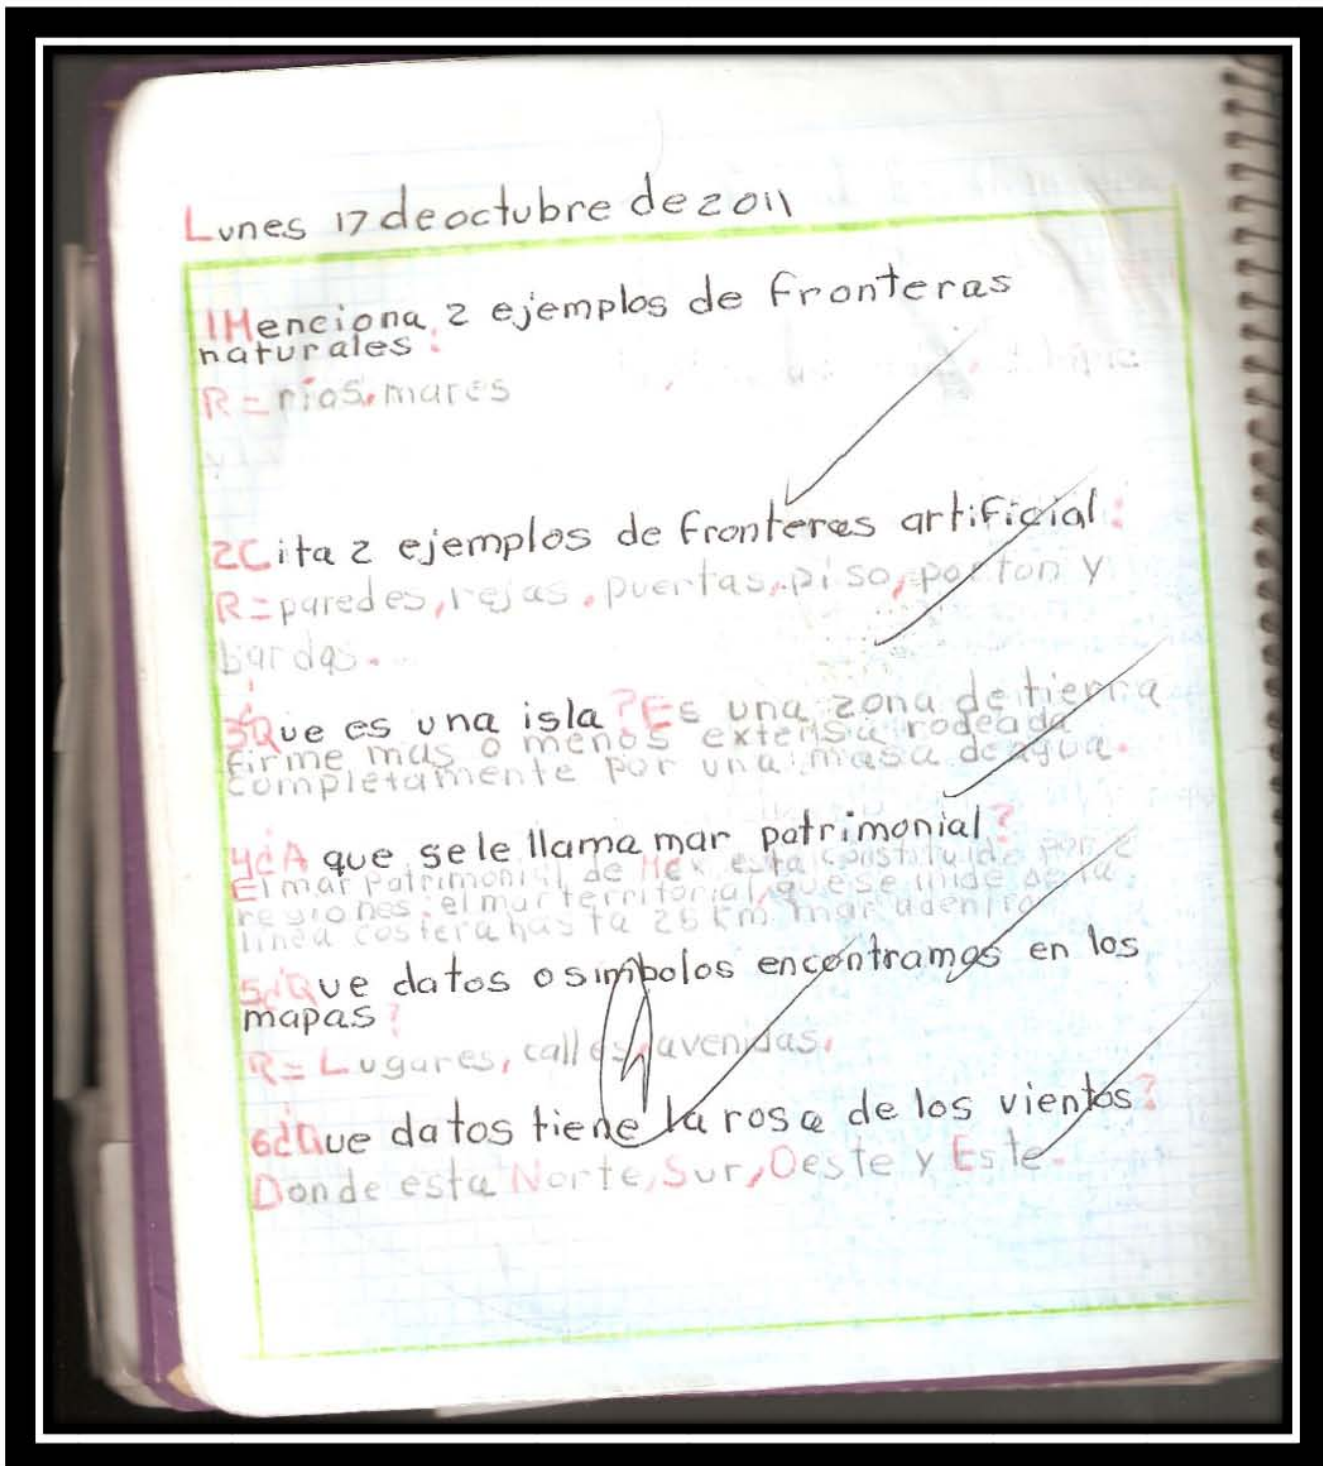 Lunes 17 de octubre de 2011
1Menciona 2 ejemplos de fronteras
naturales:
R=rios.mares
2Cita 2 ejemplos de fronteras artificial:
R=paredes, rejas, puertas, piso, porton y
bardas.
3¿Que es una isla? Es una zona de tierra
firme mas o menos extensa rodeada
completamente por una masa de agua.
4¿A que se le llama mar patrimonial?
El mar Patrimonial de Mex esta constituido por 2
regiones: el mar territorial, que se mide de la
linea costera hasta 26 km mar adentro
5¿Que datos o simbolos encontramos en los
mapas?
R=Lugares, calles, avenidas.
6¿Que datos tiene la rosa de los vientos?
Donde esta Norte, Sur, Oeste y Este.